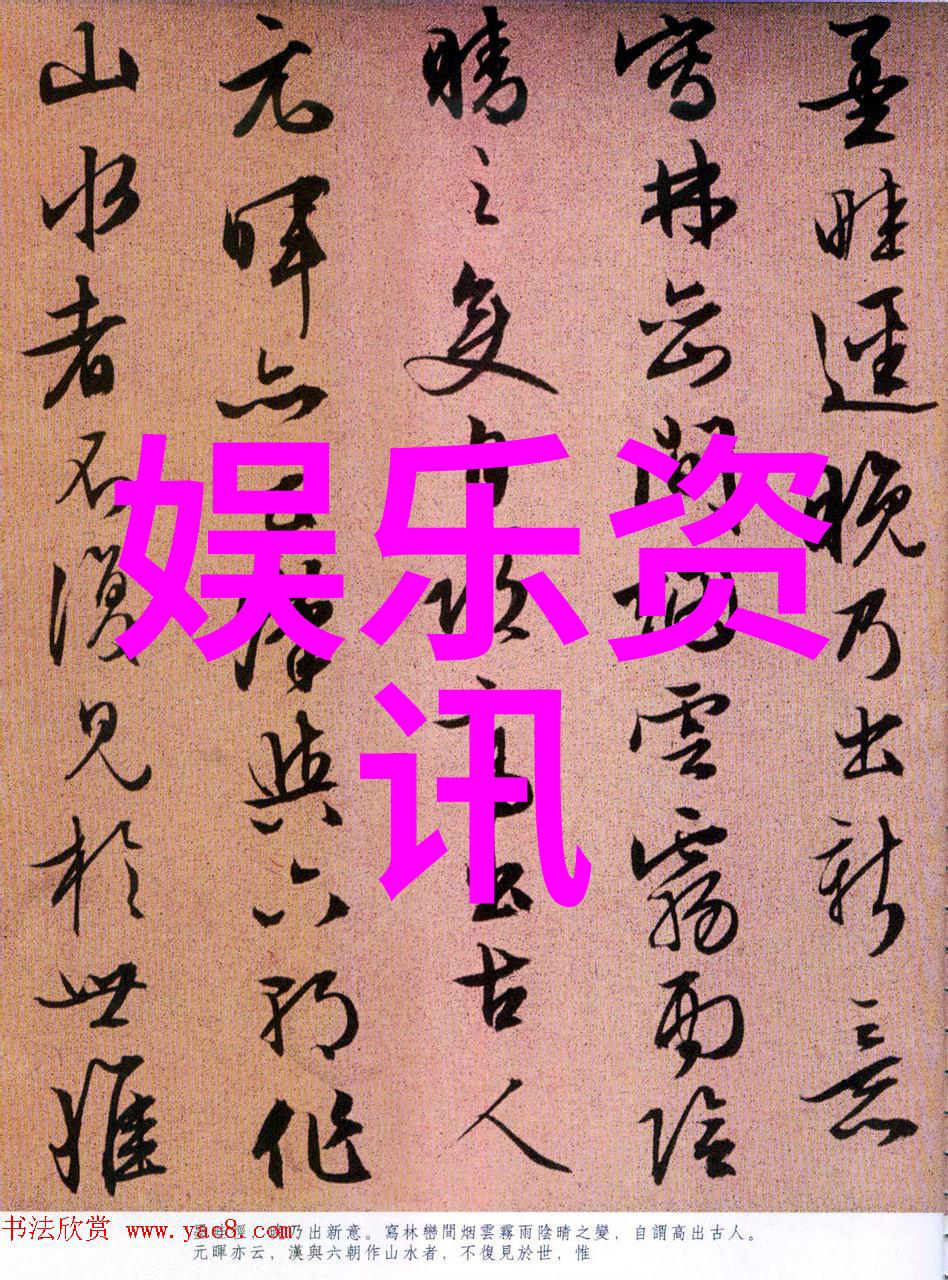 墨畦逕晚乃出新意
寫林巒間烟雲霧雨陰
晴之變自謂高出古人
元暉亦云漢與六朝作
山水者不復見於世惟
娱乐资
讯
书法欣赏 www.yac8.com
墨畦徑，晚乃出新意。寫林巒間烟雲霧雨陰晴之變，自謂高出古人。
元暉亦云，漢與六朝作山水者，不復見於世，惟